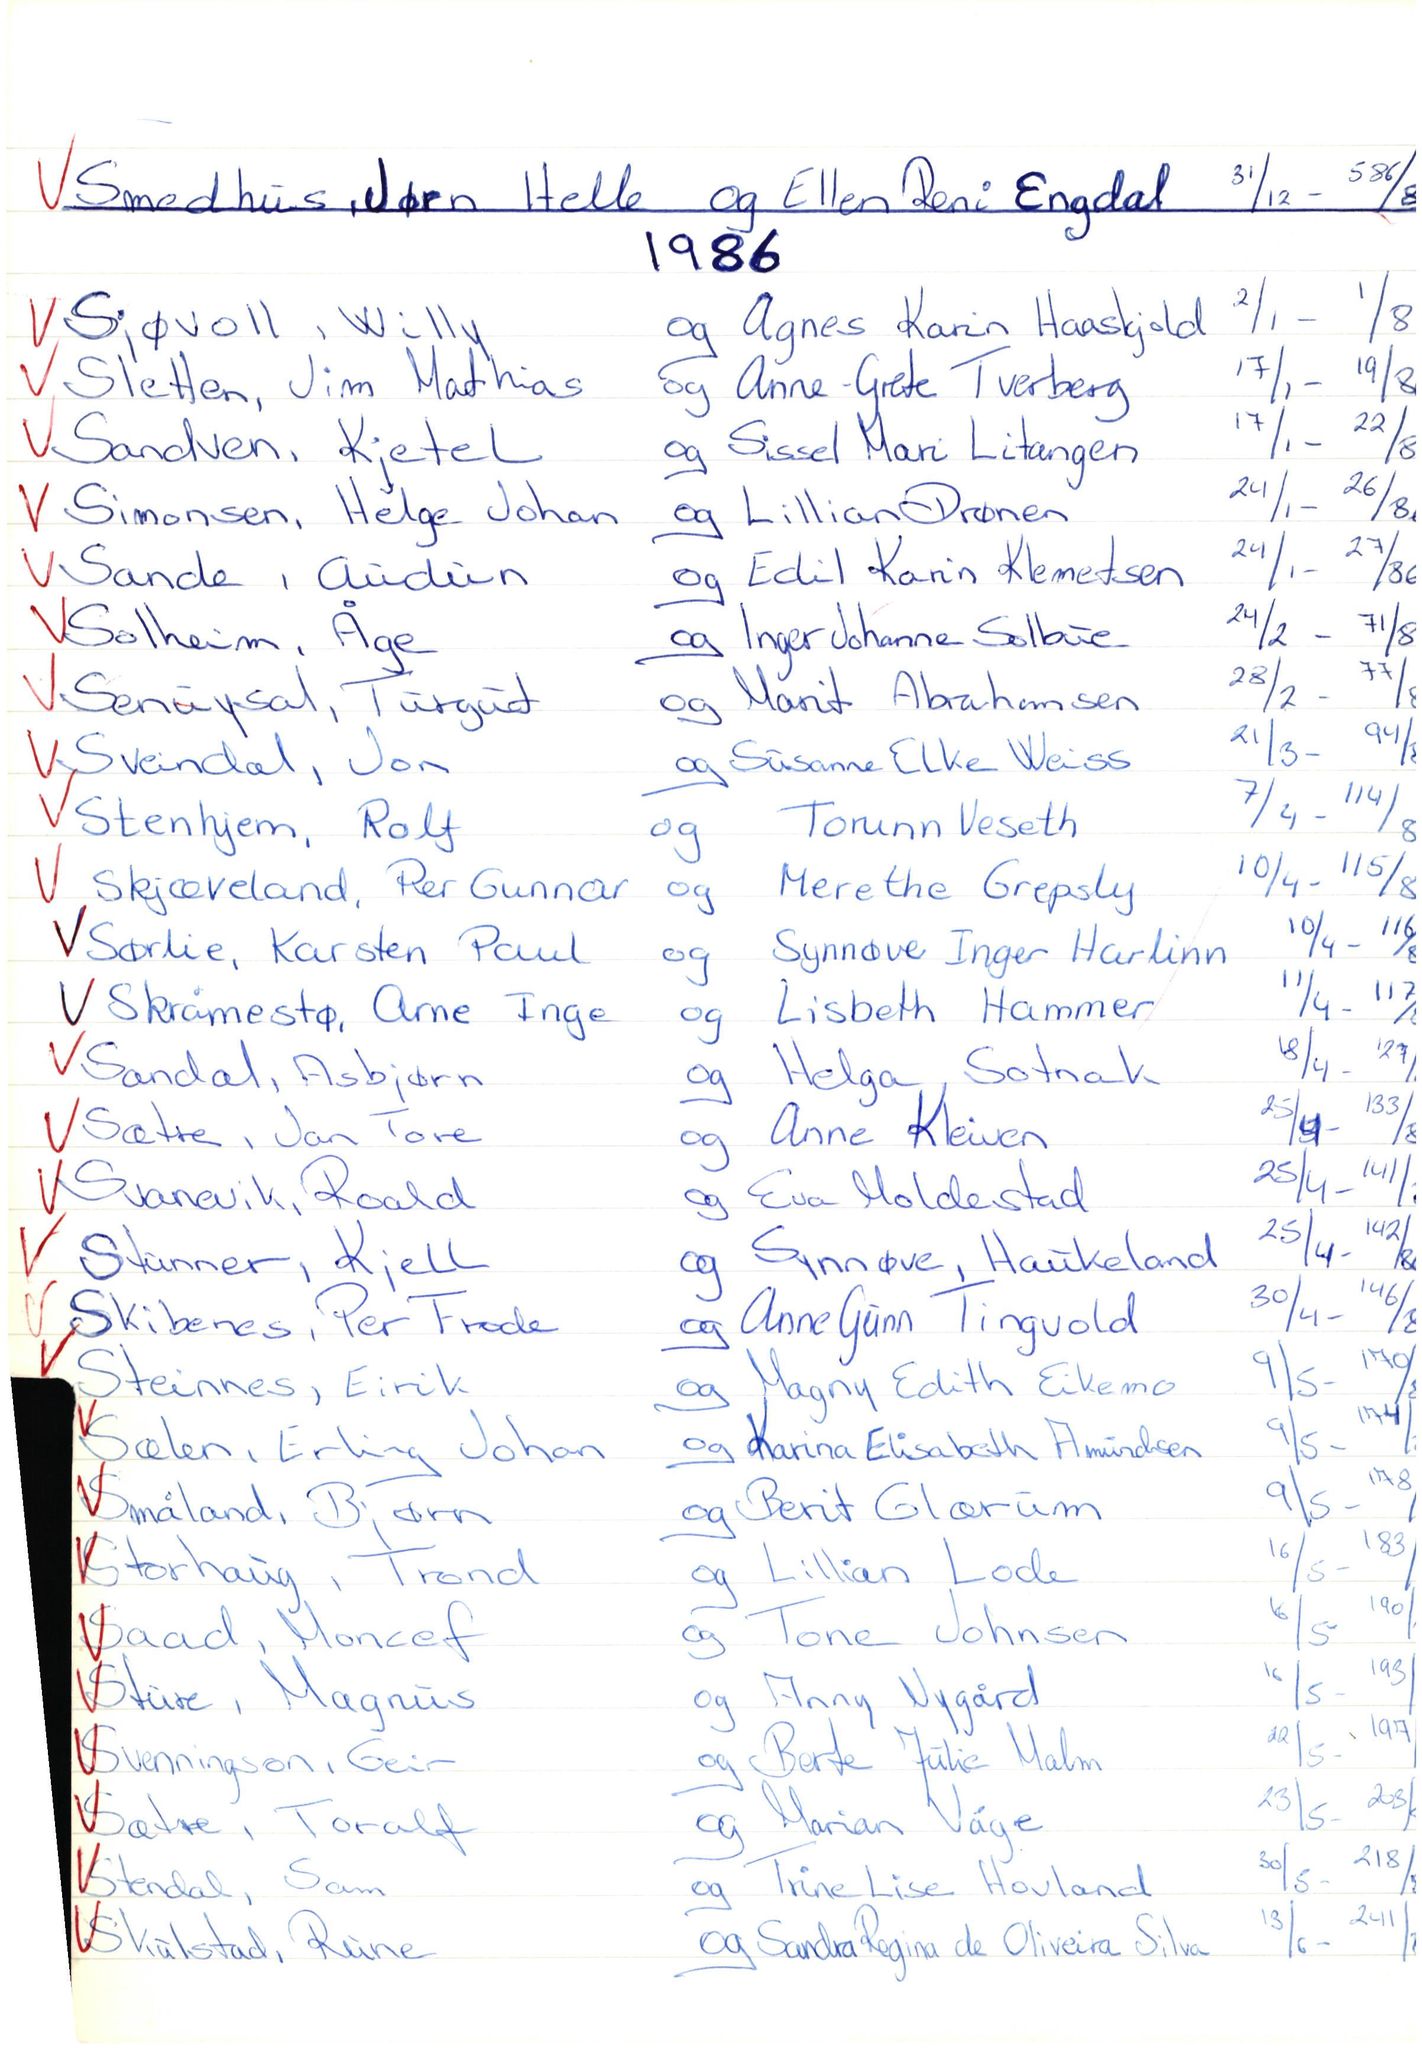 Smedhus, Jørn Helle og Ellen Reni Engdal 31/12 - 586/8
1986
Sjøvoll, Willy og Agnes Karin Haaskjold 2/1 - 1/8
Sletten, Jim Mathias og Anne-Grete Tverberg 17/1 - 19/8
Sandven, Kjetel og Sissel Mari Litangen 17/1 - 22/8
Simonsen, Helge Johan og Lillian Drønen 24/1 - 26/8
Sande, Audun og Edil Karin Klemetsen 24/1 - 27/86
Solheim, Åge og Inger Johanne Solbue 24/2 - 71/8
Senüysal, Turgut og Marit Abrahamsen 28/2 - 77/8
Sveindal, Jon og Susanne Elke Weiss 21/3 - 94/8
Stenhjem, Rolf og Torunn Veseth 7/4 - 114/8
Skjæveland, Per Gunnar og Merethe Grepsly 10/4 - 115/8
Sørlie, Karsten Paul og Synnøve Inger Harlinn 10/4 - 116/8
Skråmestø, Arne Inge og Lisbeth Hammer 11/4 - 117/8
Sandal, Asbjørn og Helga, Sotnak 18/4 - 127/
Sætre, Jan Tore og Anne Kleiven 25/4 - 133/8
Svanevik, Roald og Eva Moldestad 25/4 - 141/
Stunner, Kjell og Synnøve, Haukeland 25/4 - 142/8
Skibenes, Per Frode og Anne Gunn Tingvold 30/4 - 146/8
Steinnes, Eirik og Magny Edith Eikemo 9/5 - 170/8
Sælen, Erling Johan og Karina Elisabeth Amundsen 9/5 - 174/
Småland, Bjørn og Berit Glærum 9/5 - 178/
Storhaug, Trond og Lillian Lode 16/5 - 183/
Saad, Moncef og Tone Johnsen 16/5 190/
Sture, Magnus og Anny Nygård 16/5 - 193/
Svenningson, Geir og Berte Julie Malm 22/5 - 197/
Sætre, Toralf og Marian Våge 23/5 - 203/
Stendal, Sam og Trine Lise Hovland 30/5 - 218/
Skulstad, Rune og Sandra Regina de Oliveira Silva 13/6 - 241/